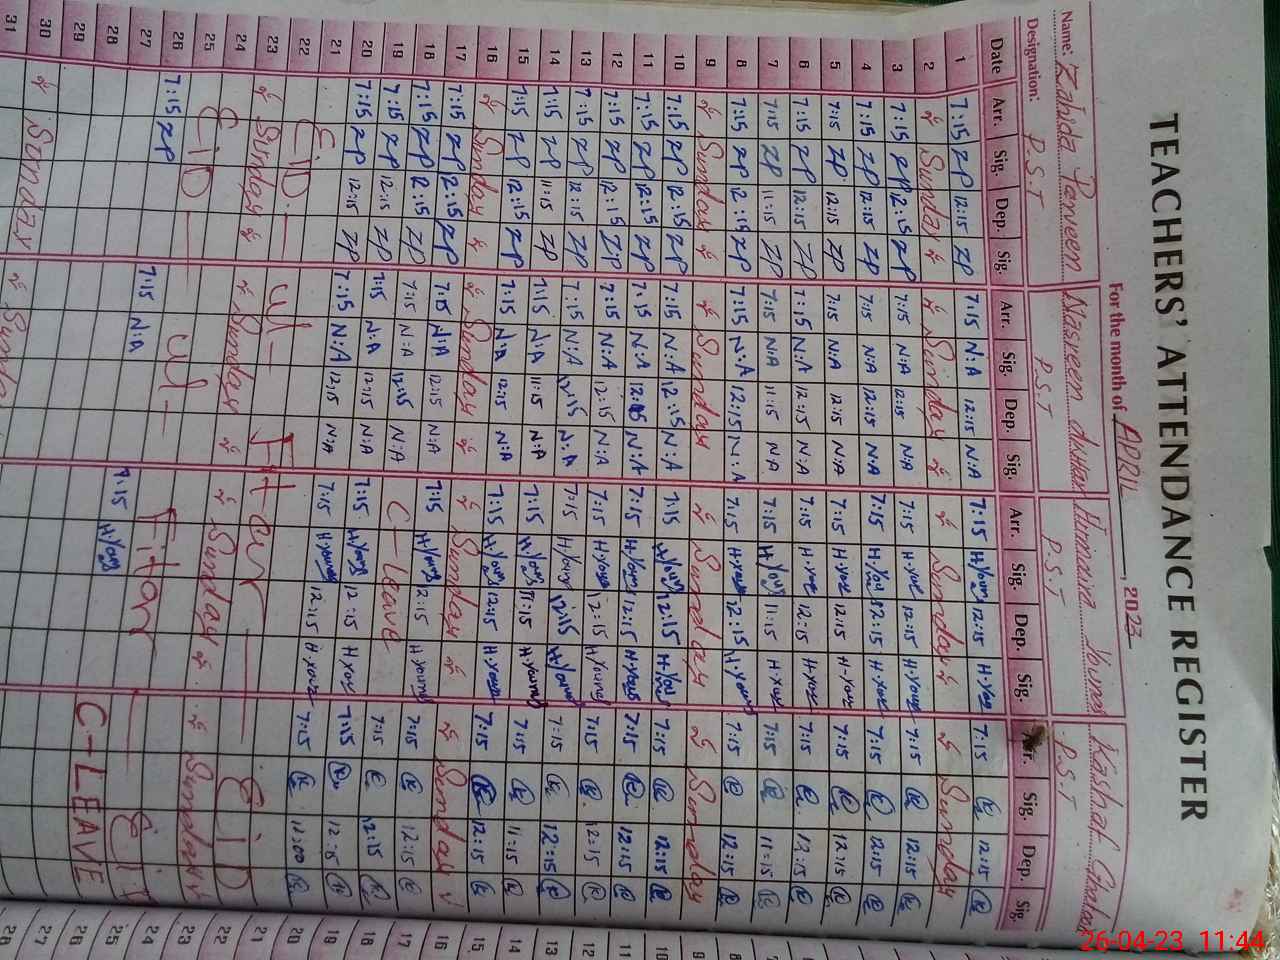 TEACHERS' ATTENDANCE REGISTER
For the month of APRIL, 2023
Name: Zahida Parveen Nasreen Akhtar Humaira Younas Kashaf
Designation: P.S.T P.S.T P.S.T P.S.T
Date Arr. Sig. Dep. Sig. Arr. Sig. Dep. Sig. Arr. Sig. Dep. Sig. Arr. Sig. Dep. Sig.
1 7:15 ZP 12:15 ZP 7:15 N:A 12:15 N:A 7:15 H.Youn 12:15 H.You 7:15 12:15
2 Sunday Sunday Sunday Sunday
3 7:15 ZP 12:15 ZP 7:15 N:A 12:15 N:A 7:15 H.You 12:15 H.You 7:15 12:15
4 7:15 ZP 12:15 ZP 7:15 N:A 12:15 N:A 7:15 H.You 12:15 H.You 7:15 12:15
5 7:15 ZP 12:15 ZP 7:15 N:A 12:15 N:A 7:15 H.You 12:15 H.You 7:15 12:15
6 7:15 ZP 12:15 ZP 7:15 N:A 12:15 N:A 7:15 H.You 12:15 H.You 7:15 12:15
7 7:15 ZP 11:15 ZP 7:15 N:A 11:15 N:A 7:15 H.You 11:15 H.You 7:15 11:15
8 7:15 ZP 12:15 ZP 7:15 N:A 12:15 N:A 7:15 H.You 12:15 H.Young 7:15 12:15
9 Sunday Sunday Sunday Sunday
10 7:15 ZP 12:15 ZP 7:15 N:A 12:15 N:A 7:15 H.You 12:15 H.You 7:15 12:15
11 7:15 ZP 12:15 ZP 7:15 N:A 12:15 N:A 7:15 H.Youn 12:15 H.Youn 7:15 12:15
12 7:15 ZP 12:15 ZP 7:15 N:A 12:15 N:A 7:15 H.You 12:15 H.Young 7:15 12:15
13 7:15 ZP 12:15 ZP 7:15 N:A 12:15 N:A 7:15 H.Youn 12:15 H.Youn 7:15 12:15
14 7:15 ZP 11:15 ZP 7:15 N:A 11:15 N:A 7:15 H.Youn 11:15 H.Young 7:15 11:15
15 7:15 ZP 12:15 ZP 7:15 N:A 12:15 N:A 7:15 H.Youn 12:15 H.You 7:15 12:15
16 Sunday Sunday Sunday Sunday
17 7:15 ZP 12:15 ZP 7:15 N:A 12:15 N:A 7:15 H.Young 12:15 H.Young 7:15 12:15
18 7:15 ZP 12:15 ZP 7:15 N:A 12:15 N:A C-leave 7:15 12:15
19 7:15 ZP 12:15 ZP 7:15 N:A 12:15 N:A 7:15 H.Young 12:15 H.You 7:15 12:15
20 7:15 ZP 12:15 ZP 7:15 N:A 12:15 N:A 7:15 H.Youn 12:15 H.You 7:15 11:00
21
22 EID - ul - Fitar EID
23 Sunday Sunday Sunday Sunday
24
25 EID - ul - Fitar
26 7:15 ZP 7:15 N:A 7:15 H.Young C-LEAVE
27
28
29
30 Sunday Sunday
31
20
21
22
23
24
25
26
27
28
26-04-23 11:44